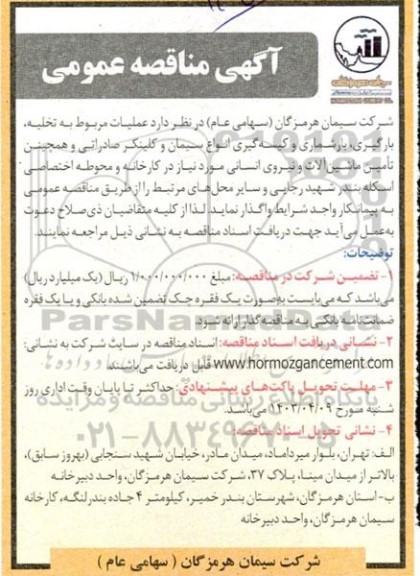 آگهی مناقصه عمومی
شرکت سیمان هرمزگان (سهامی عام) در نظر دارد عملیات مربوط به تخلیه،
بارگیری، بارشماری و کیسه‌گیری انواع سیمان و کلینکر صادراتی و همچنین
تأمین ماشین‌آلات و نیروی انسانی مورد نیاز در کارخانه و محوطه اختصاصی
اسکله بندر شهید رجایی و سایر محل‌های مرتبط را از طریق مناقصه عمومی
به پیمانکار واجد شرایط واگذار نماید. لذا از کلیه متقاضیان ذی‌صلاح دعوت
به‌عمل می‌آید جهت دریافت اسناد مناقصه به نشانی ذیل مراجعه نمایند.
توضیحات:
۱- تضمین شرکت در مناقصه: مبلغ ۱/۰۰۰/۰۰۰/۰۰۰ ریال (یک میلیارد ریال)
می‌باشد که می‌بایست به‌صورت یک فقره چک تضمین شده بانکی و یا یک فقره
ضمانت‌نامه بانکی به مناقصه‌گذار ارائه شود.
۲- نشانی دریافت اسناد مناقصه: اسناد مناقصه در سایت شرکت به نشانی:
www.hormozgancement.com قابل دریافت می‌باشند.
۳- مهلت تحویل پاکت‌های پیشنهادی: حداکثر تا پایان وقت اداری روز
شنبه مورخ ۱۴۰۳/۰۴/۰۹ می‌باشد.
۴- نشانی تحویل اسناد مناقصه:
الف: تهران، بلوار میرداماد، میدان مادر، خیابان شهید سنجابی (بهروز سابق)،
بالاتر از میدان مینا، پلاک ۳۷، شرکت سیمان هرمزگان، واحد دبیرخانه
ب- استان هرمزگان، شهرستان بندر خمیر، کیلومتر ۴ جاده بندرلنگه، کارخانه
سیمان هرمزگان، واحد دبیرخانه
شرکت سیمان هرمزگان ( سهامی عام )
ParsNamadData
پایگاه اطلاع رسانی مناقصه و مزایده